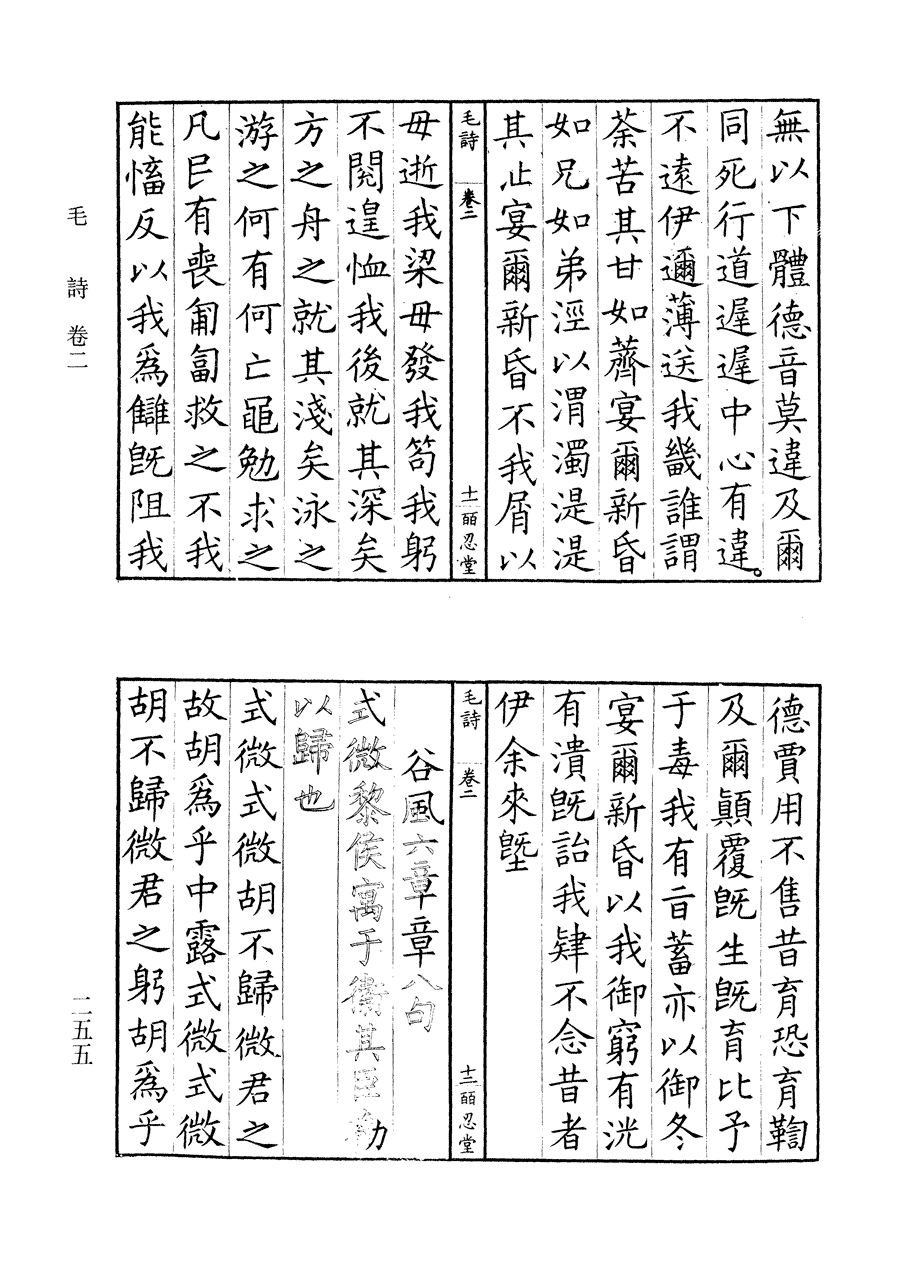 無以下體德音莫違及爾
同死行道遲遲中心有違。
不遠伊邇薄送我畿誰謂
荼苦其甘如薺宴爾新昏
如兄如弟涇以渭濁湜湜
其止宴爾新昏不我屑以
毛詩 卷二 十一 皕忍堂
毋逝我梁毋發我笱我躬
不閱遑恤我後就其深矣
方之舟之就其淺矣泳之
游之何有何亡黽勉求之
凡民有喪匍匐救之不我
能慉反以我爲讎旣阻我
德賈用不售昔育恐育鞫
及爾顚覆旣生旣育比予
于毒我有旨蓄亦以御冬
宴爾新昏以我御窮有洸
有潰旣詒我肄不念昔者
伊余來墍
毛詩 卷二 十二 皕忍堂
谷風六章章八句
式微黎侯寓于衞其臣勸
以歸也
式微式微胡不歸微君之
故胡爲乎中露式微式微
胡不歸微君之躬胡爲乎
毛詩 卷二
二五五